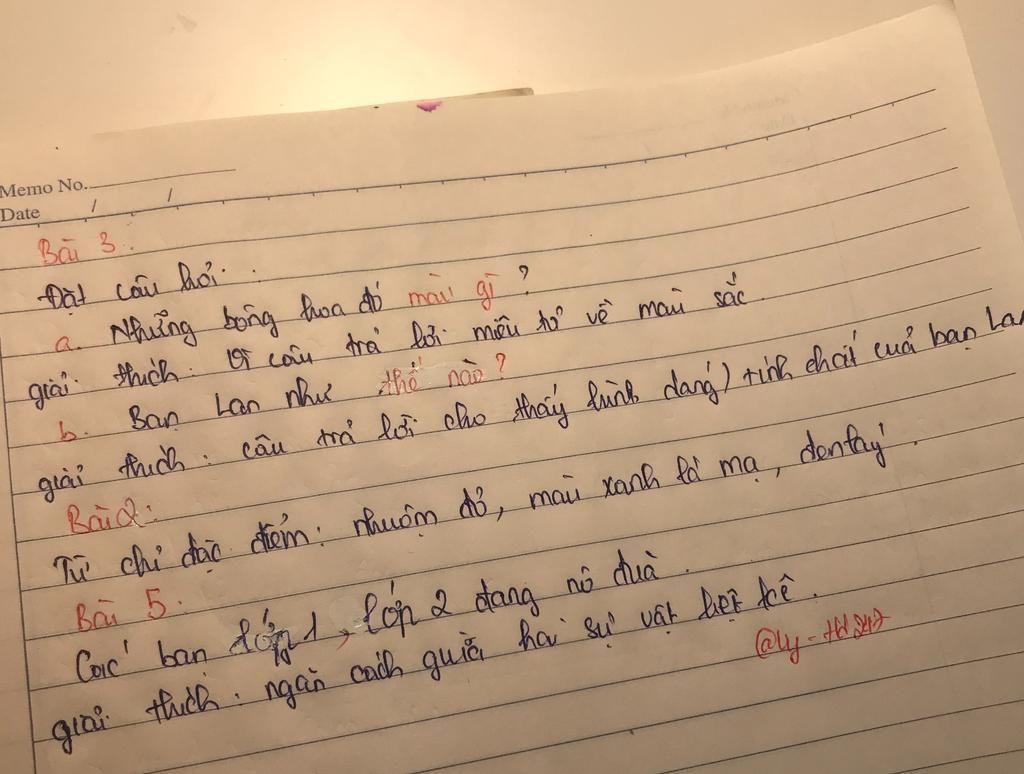 Memo No.
Date / /
Bài 3:
Đặt câu hỏi:
a. Những bông hoa đó màu gì?
giải thích: Vì câu trả lời miêu tả về màu sắc.
b. Bạn Lan như thế nào?
giải thích: câu trả lời cho thấy hình dáng, tính chất của bạn Lan
Bài 2:
Từ chỉ đặc điểm: nhuộm đỏ, màu xanh lá mạ, đen láy.
Bài 5:
Các bạn lớp 1, lớp 2 đang nô đùa.
giải thích: ngăn cách giữa hai sự vật liệt kê.